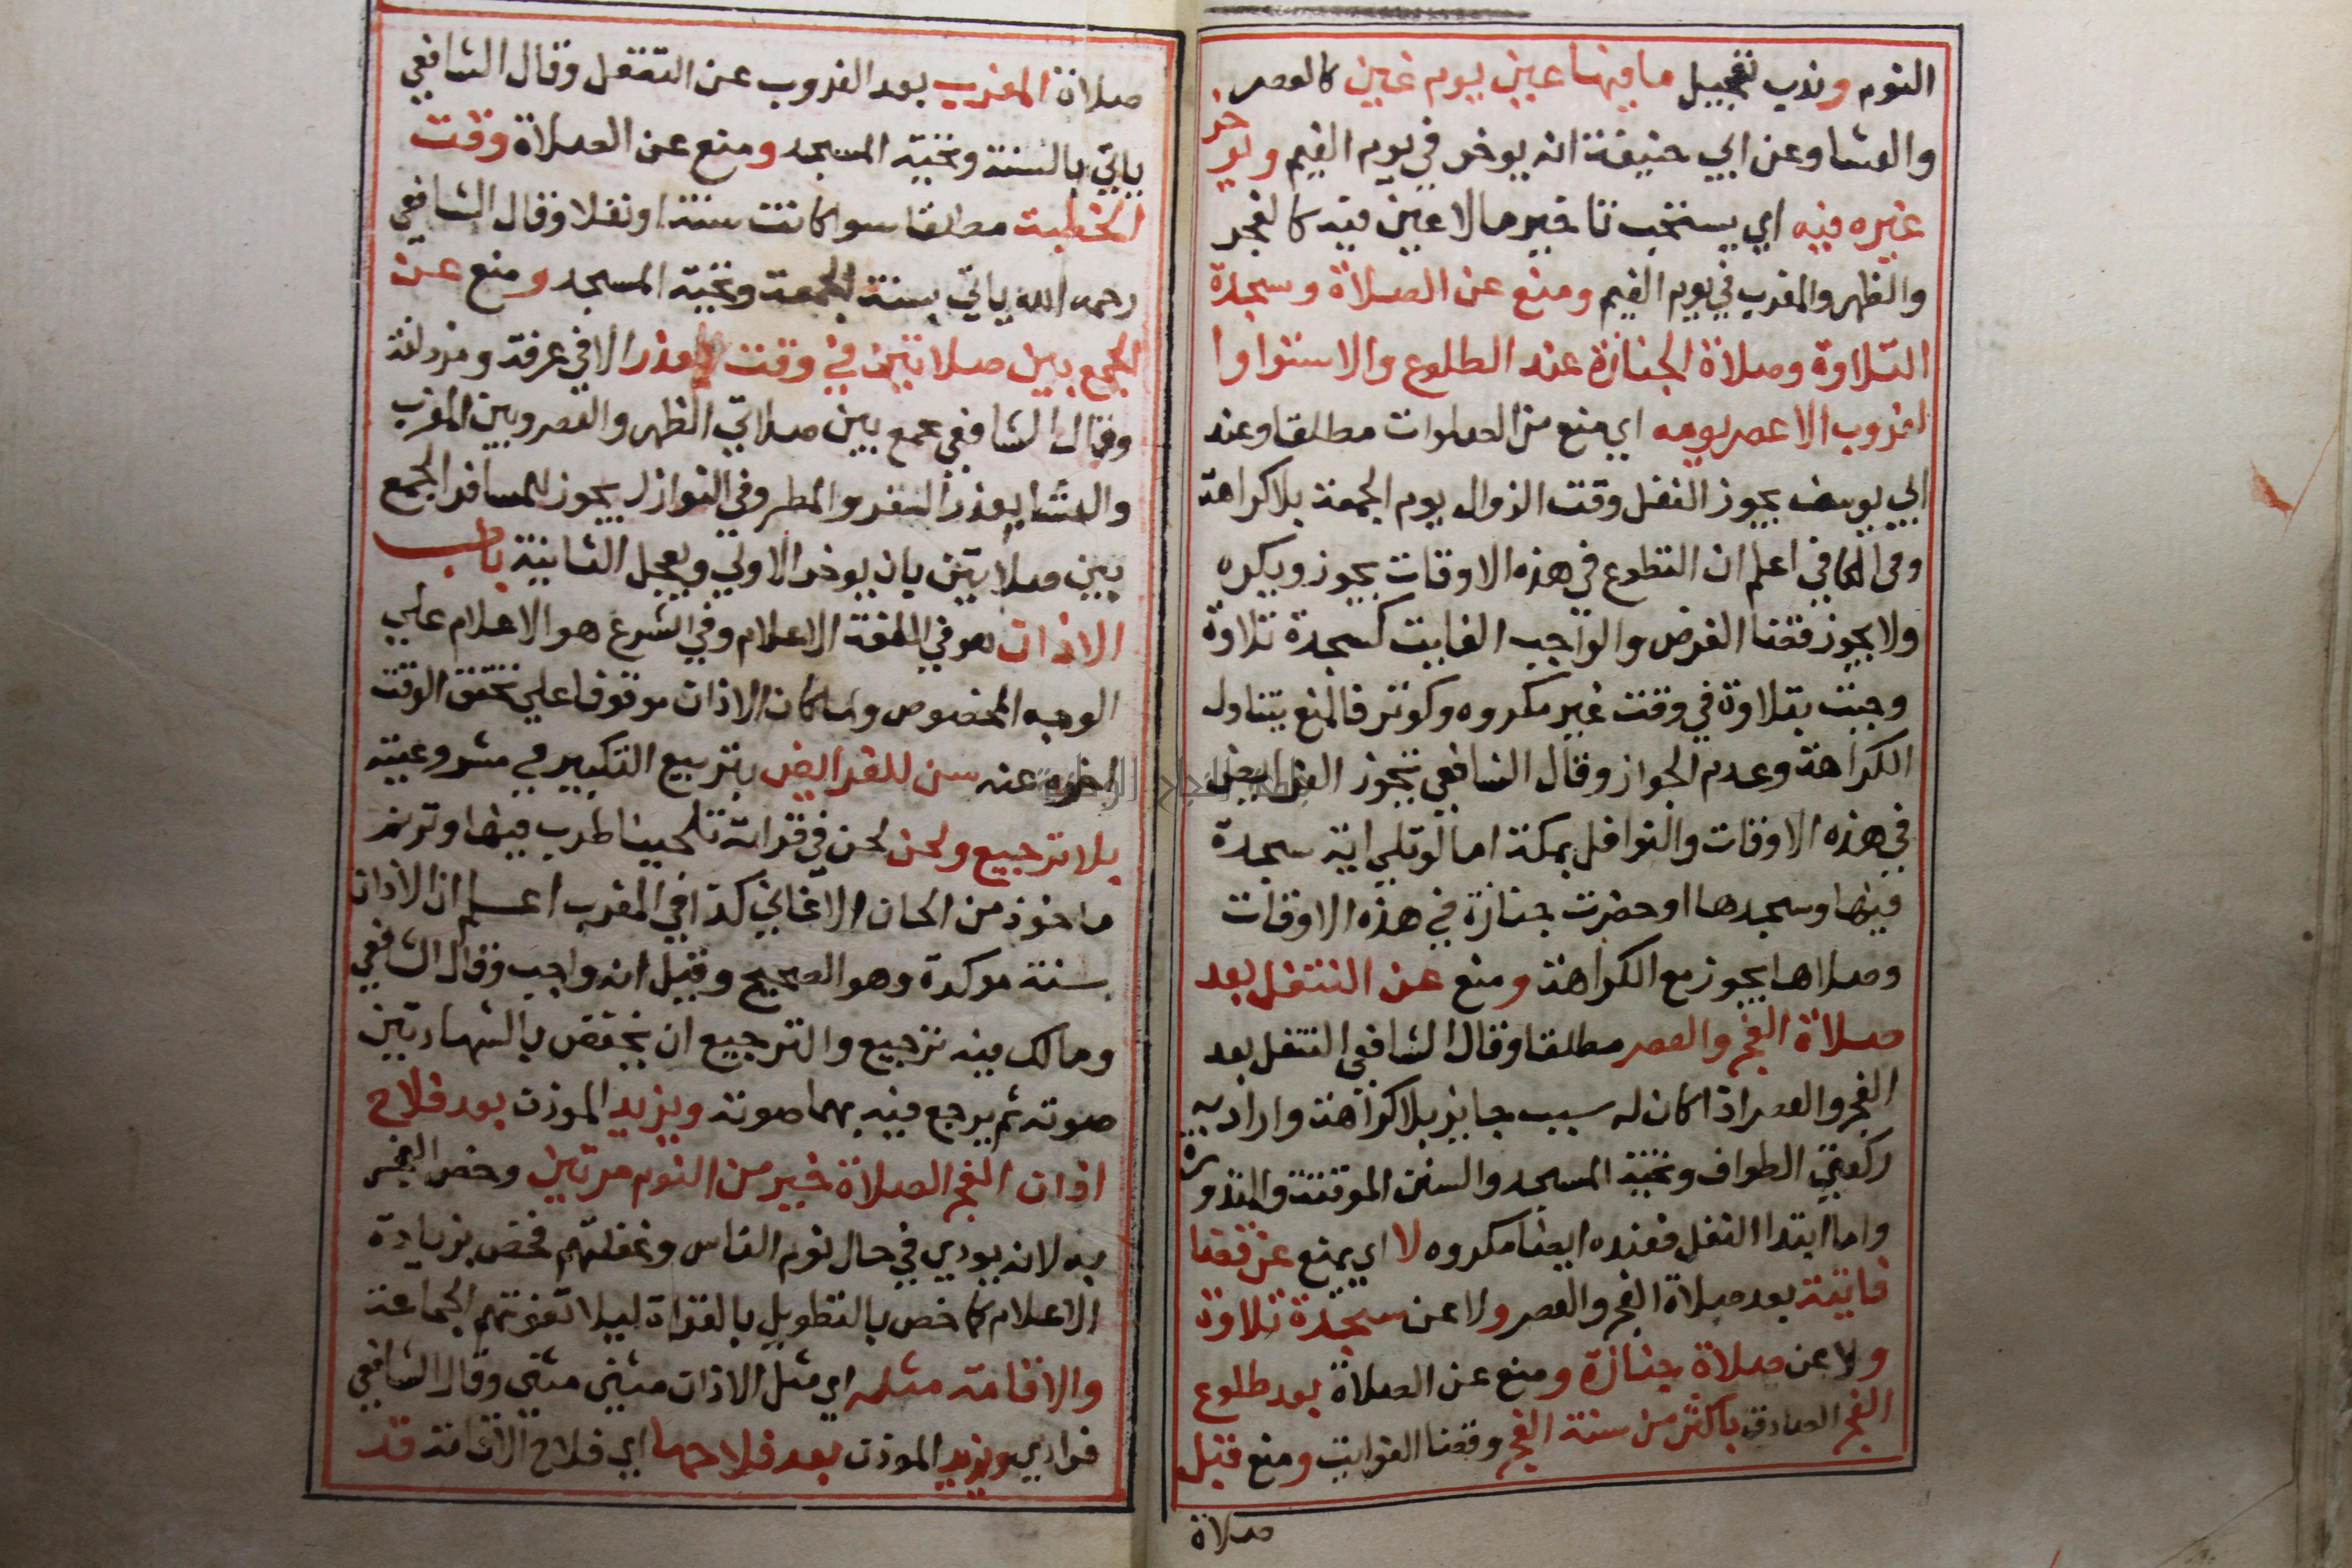 النوم وندب تعجيل ما فيها عين يوم غين كالعصر
والعشا وعن ابي حنيفة انه يوخر في يوم الغيم ويوخر
غيره فيه اي يستحب تاخير ما لا عين فيه كالفجر
والظهر والمغرب في يوم الغيم ومنع عن الصلاة وسجدة
التلاوة وصلاة الجنازة عند الطلوع والاستوا وا
لغروب الا عصر يومه اي منع من الصلوات مطلقا وعند
ابي يوسف يجوز النفل وقت الزوال يوم الجمعة بلا كراهة
وفي الكافي اعلم ان التطوع في هذه الاوقات يجوز ويكره
ولا يجوز قضا الفرض والواجب الفايت كسجدة تلاوة
وجبت بتلاوة في وقت غير مكروه وكوتر فالمنع يتناول
الكراهة وعدم الجواز وقال الشافعي تجوز الفرايض
في هذه الاوقات والنوافل بمكة اما لو تلي اية سجدة
فيها وسجدها او حضرت جنازة في هذه الاوقات
وصلاها يجوز مع الكراهة ومنع عن التنفل بعد
صلاة الفجر والعصر مطلقا وقال الشافعي التنفل بعد
الفجر والعصر اذا كان له سبب جايز بلا كراهة واراد به
ركعتي الطواف وتحية المسجد والسنن الموقتة والمنذورة
واما ابتدا النفل فعنده ايضا مكروه لا اي يمنع عن قضا
فايتة بعد صلاة الفجر والعصر ولا عن سجدة تلاوة
ولا عن صلاة جنازة ومنع عن الصلاة بعد طلوع
الفجر الصادق باكثر من سنة الفجر وقضا الفوايت ومنع قبل
صلاة
صلاة المغرب بعد الغروب عن التنفل وقال الشافعي
ياتي بالسنة وتحية المسجد ومنع عن الصلاة وقت
الخطبة مطلقا سوا كانت سنة او نفلا وقال الشافعي
رحمه الله ياتي بسنة الجمعة وتحية المسجد ومنع عن
الجمع بين صلاتين في وقت بعذر الا في عرفة ومزدلفة
وقال الشافعي يجمع بين صلاتي الظهر والعصر وبين المغرب
والعشا بعذر السفر والمطر وفي النوازل يجوز للمسافر الجمع
بين صلاتين بان يوخر الاولي ويعجل الثانية باب
الاذان هو في اللغة الاعلام وفي الشرع هو الاعلام علي
الوجه المخصوص ولما كان الاذان موقوفا علي تحقق الوقت
اخره عنه سن للفرايض بتربيع التكبير في مشروعيته
بلا ترجيع ولحن لحن في قراته تلحينا طرب فيها وترنم
ماخوذ من الحان الاغاني كذا في المغرب اعلم ان الاذان
سنة موكدة وهو الصحيح وقيل انه واجب وقال الشافعي
ومالك فيه ترجيع والترجيع ان يخفض بالشهادتين
صوته ثم يرجع فيه بهما صوته ويزيد الموذن بعد فلاح
اذان الفجر الصلاة خير من النوم مرتين وخص الفجر
به لانه يودي في حال نوم الناس وغفلتهم فخص بزيادة
الاعلام كما خص بالتطويل بالقراة ليلا تفوتهم الجماعة
والاقامة مثله اي مثل الاذان مثني مثني وقال الشافعي
فرادي ويزيد الموذن بعد فلاحها اي فلاح الاقامة قد